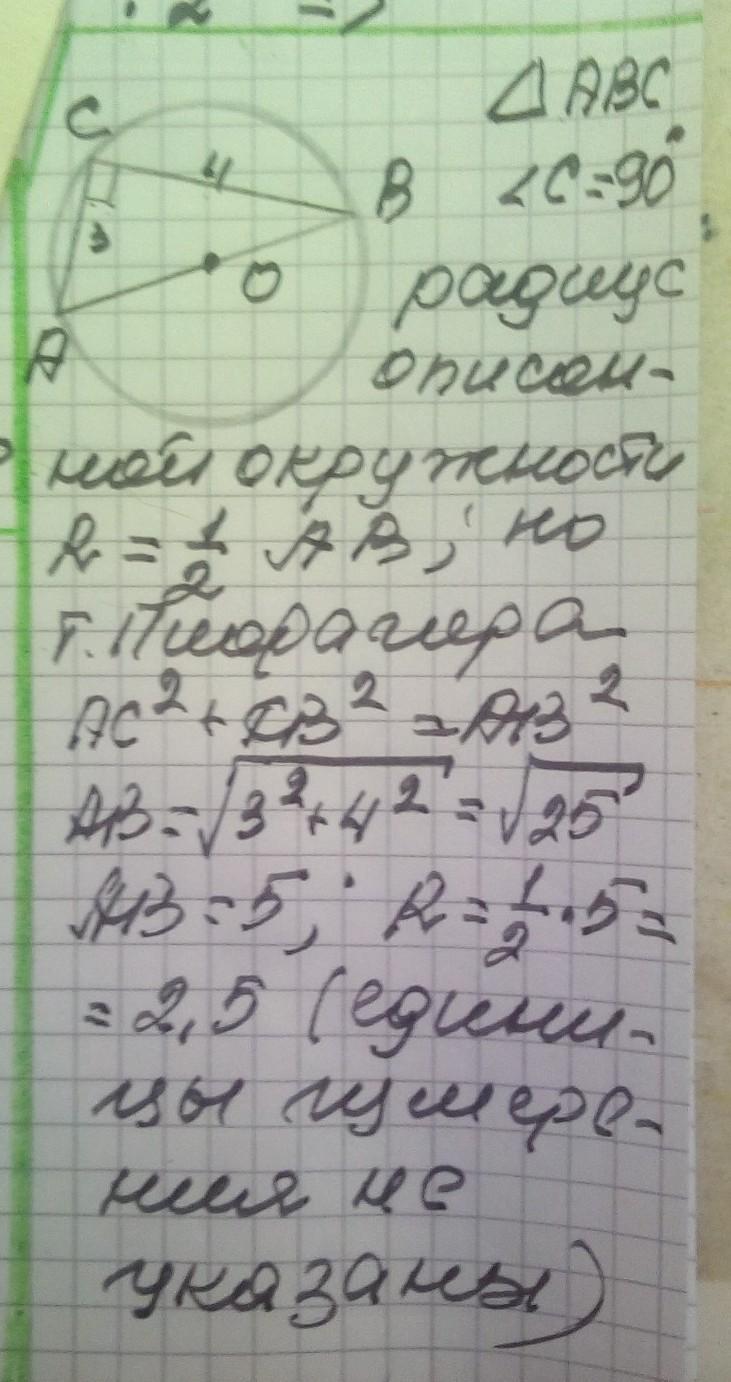 : 2 =>
△ABC
C
4
B
∠C=90°
3
O
радиус
A
описан-
ной окружности
R = 1/2 AB; по
т. Пифагора
AC² + CB² = AB²
AB = √3²+4² = √25
AB = 5; R = 1/2 · 5 =
= 2,5 (едини-
цы измере-
ния не
указаны)